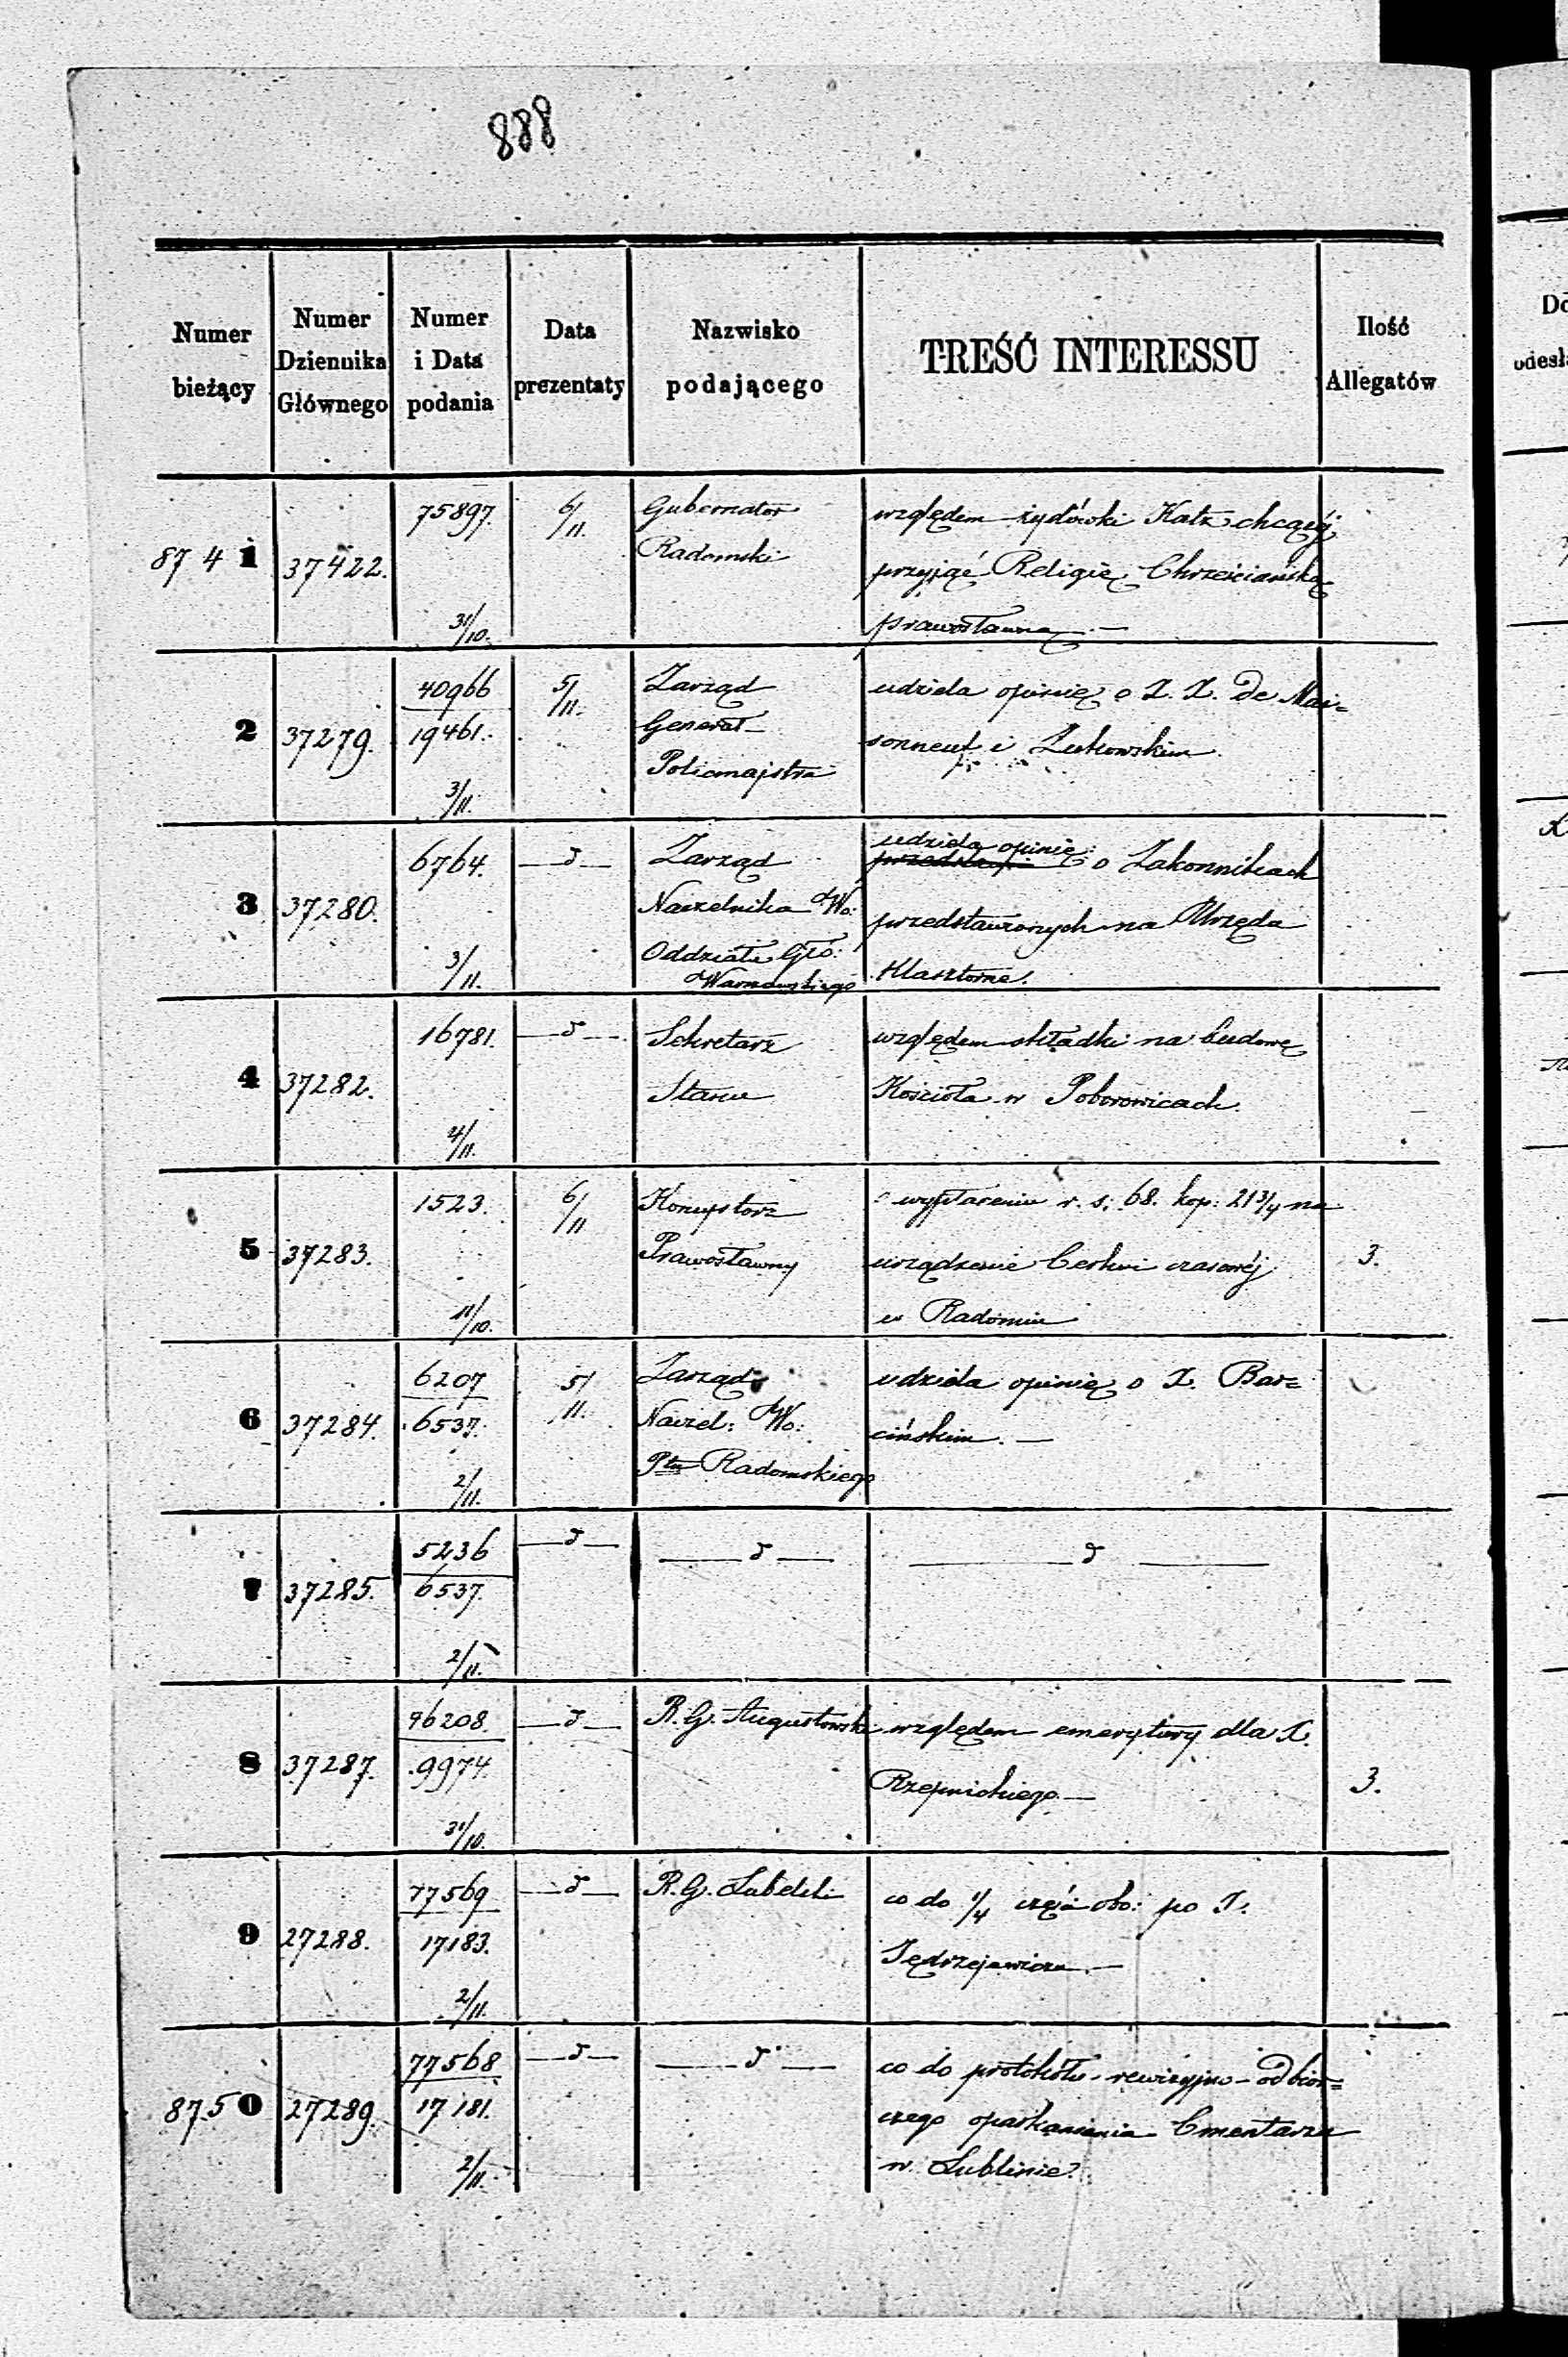 888
Numer bieżący
Numer Dziennika Głównego
Numer i Data podania
Data prezentaty
Nazwisko podającego
TREŚĆ INTERESSU
Ilość Allegatów
874 1
37422.
75897.
31/10.
6/11.
Gubernator
Radomski
względem żydówki Katz chcącej
przyjąć Religię Chrześciańską
prawosławną. —
2
37279.
40966
19461.
3/11.
5/11.
Zarząd
Generał
Policmajstra
udziela opinię o X. X. de Mai=
sonneut i Żukowskim
3
37280.
6764.
3/11.
— d —
Zarząd
Naczelnika Wo:
Oddziału Głó:
Warszawskiego
udziela opinię
o Zakonnikach
przedstawionych na Urzęda
Klasztorne.
4
37282.
16781.
4/11.
— d —
Sekretarz
Stanu
względem składki na budowę
Kościoła w Poborowicach.
5
37283.
1523.
11/10.
6/11
Konsystorz
Prawosławny
o wypłacenie r. s. 68. kop: 21 3/4 na
urządzenie Cerkwi czasowéj
w Radomiu
3.
6
37284.
6207
6537.
2/11.
5/11.
Zarząd
Naczel: Wo:
Ptu Radomskiego
udziela opinię o X. Bar=
cińskim. —
7
37285.
5236
6537.
2/11.
— d —
— d —
— d —
8
37287.
76208.
9974.
31/10.
— d —
R. G. Augustowski
względem emerytury dla X.
Rzepnickiego —
3.
9
27288.
77569
17183.
2/11.
— d —
R. G. Lubelski
co do 1/4 części obo: po X.
Jędrzejewiczu. —
875 0
27289.
77568
17181.
2/11.
— d —
— d —
co do protokółu rewizyjno-odbior=
czego oparkanienia Cmentarza
w Lublinie.
Do
odesła